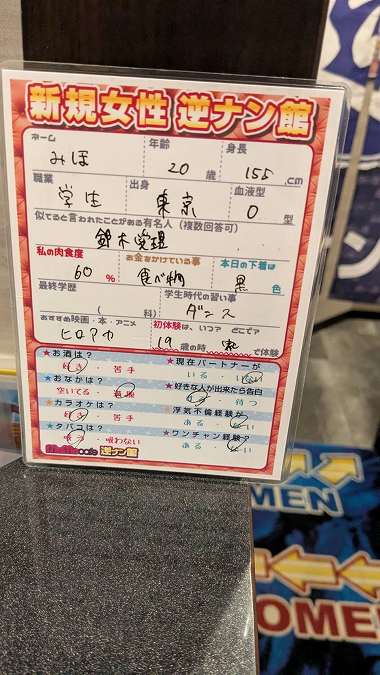 新規女性 逆ナン館
ネーム 年齢 身長
みほ 20歳 155cm
職業 出身 血液型
学生 東京 O型
似てると言われたことがある有名人(複数回答可)
鈴木愛理
私の肉食度 お金をかけている事 本日の下着は
60% 食べ物 黒色
最終学歴 学生時代の習い事
( 科) ダンス
おすすめ映画・本・アニメ 初体験は、いつ? どこで?
ヒロアカ 19歳の時 家で体験
★お酒は? ★現在パートナーが
好き・苦手 いる・いない
★おなかは? ★好きな人が出来たら告白
空いてる・満腹 する・待つ
★カラオケは? ★浮気不倫経験が
好き・苦手 ある・ない
★タバコは? ★ワンチャン経験?
吸う・吸わない ある・ない
cafe 逆ナン館
OMEN
OMEN